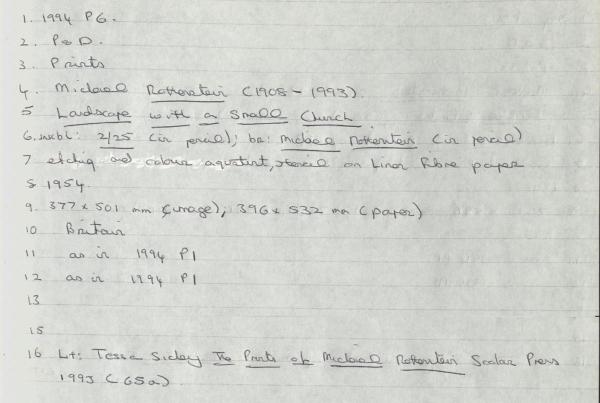 1. 1994 P6.
2. P&D.
3. Prints
4. Michael Rothenstein (1908 - 1993).
5 Landscape with a Small Church
6. inscbl: 2/25 (in pencil); br: Michael Rothenstein (in pencil)
7 etching and colour aquatint, stencil on Linen Fibre paper
8. 1954.
9. 377 x 501 mm (image); 396 x 532 mm (paper)
10 Britain
11 as in 1994 P1
12 as in 1994 P1
13
15
16 Lit: Tessa Sidey The Prints of Michael Rothenstein Scolar Press
1993 (65a)